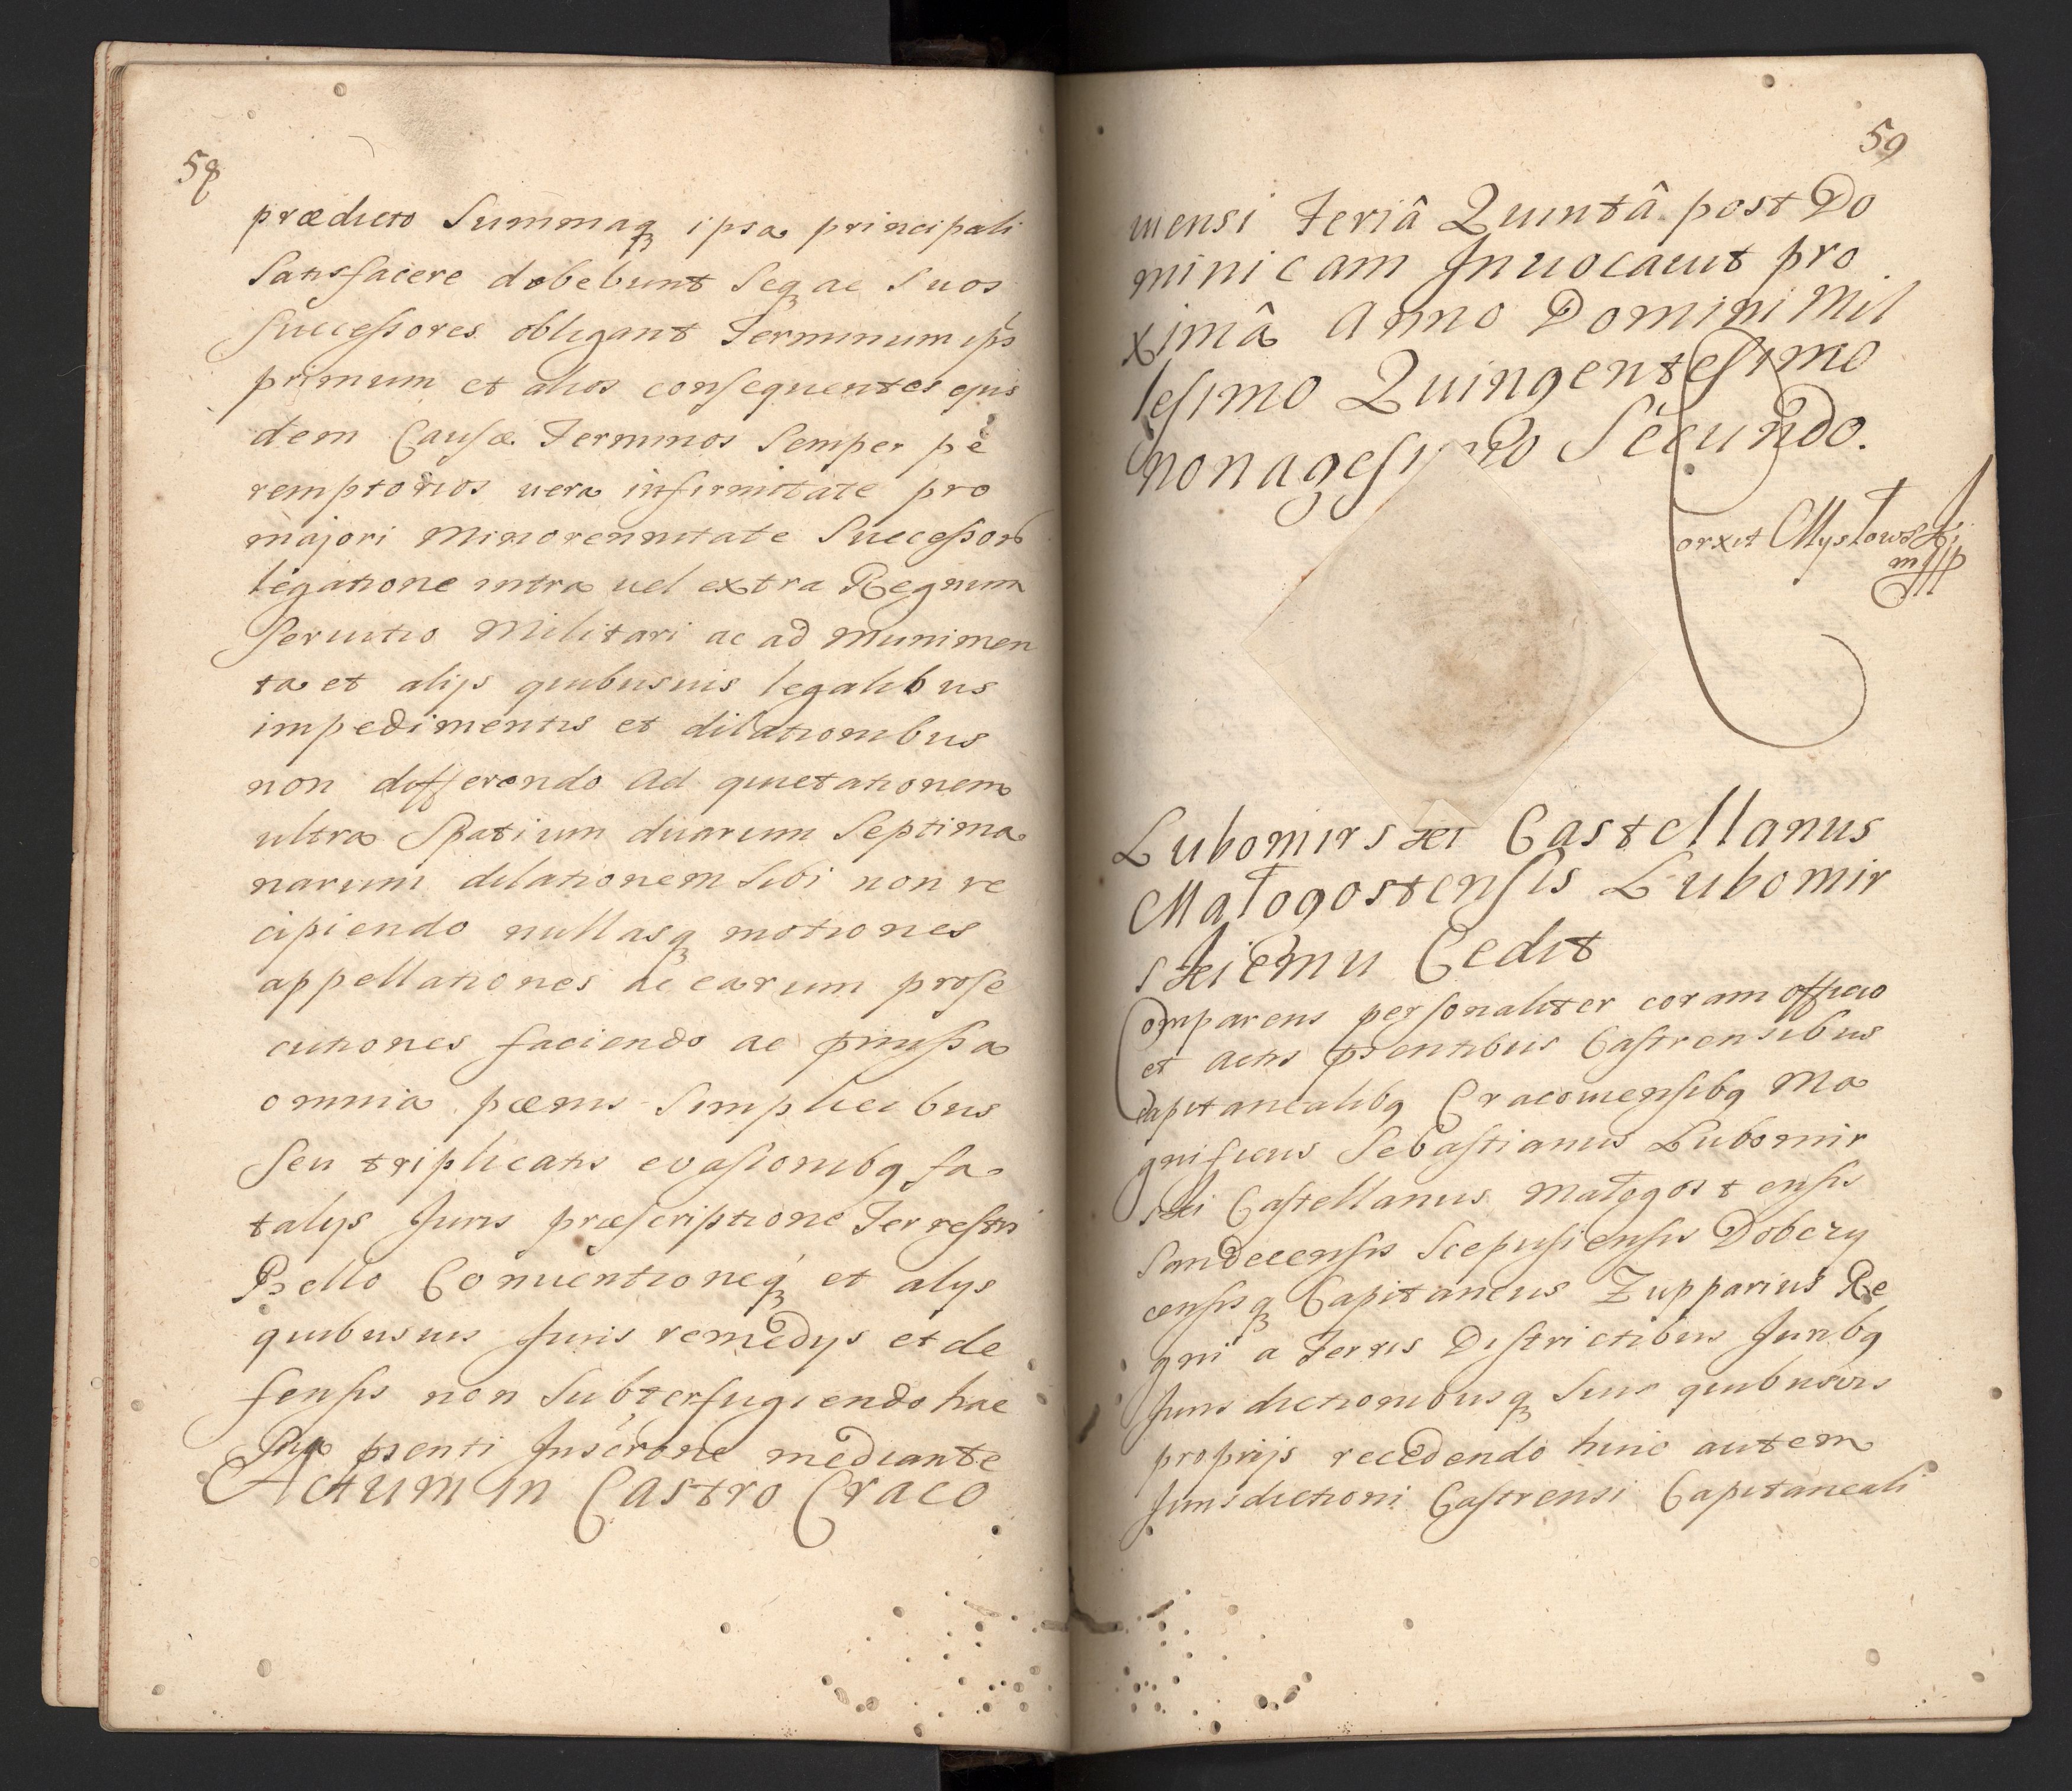 58
prædicto Summaqꝫ ipsa principali
Satisfacere debebunt Seqꝫ ac Suos
Successores obligant Terminum ips
primum et alios consequentes ejus
dem Causæ Terminos Semper pe
remptorios vera infirmitate pro
majori Minorennitate Successor
legatione intra vel extra Regnum
Servitio Militari ac ad Munimen
ta et alijs quibusuis legalibus
impedimentis et dilationibus
non differendo Ad quietationem
ultra Spatium duarum Septima
narum dilationem Sibi non re
cipiendo nullasqꝫ motiones
appellationes ac earum prose
cutiones faciendo ac pmissa
omnia pæenis Simplicibus
Seu triplicatis evasionibq fa
talijs Juris præscriptione Terrestri
Bello Conuentioneqꝫ et alijs
quibusuis Juris remedijs et de
fensis non Subterfugiendo hac
psenti Inscrone mediante
Actum in Castro Craco
59
uiensi Feriâ Quintâ post Do
minicam Inuocauit pro
ximâ Anno Domini Mil
lesimo Quingentesimo
nonagesimo Secundo.
orxit Mysłowski
mpp
Lubomirski Castellanus
Małogostensis Lubomir
skiemu Cedit
Comparens personaliter coram officio
et Actis psentibus Castrensibus
Capitanealibq Cracouiensibq Ma
gnificus Sebastianus Lubomir
ski Castellanus Małogostensis
Sandecensis Scepusiensis Dobczy
censisqꝫ Capitaneus Zupparius Re
gni a Terris Districtibus Juribq
Jurisdictionibusqꝫ Suis quibusvis
proprijs recedendo huic autem
Jurisdictioni Castrensi Capitaneali